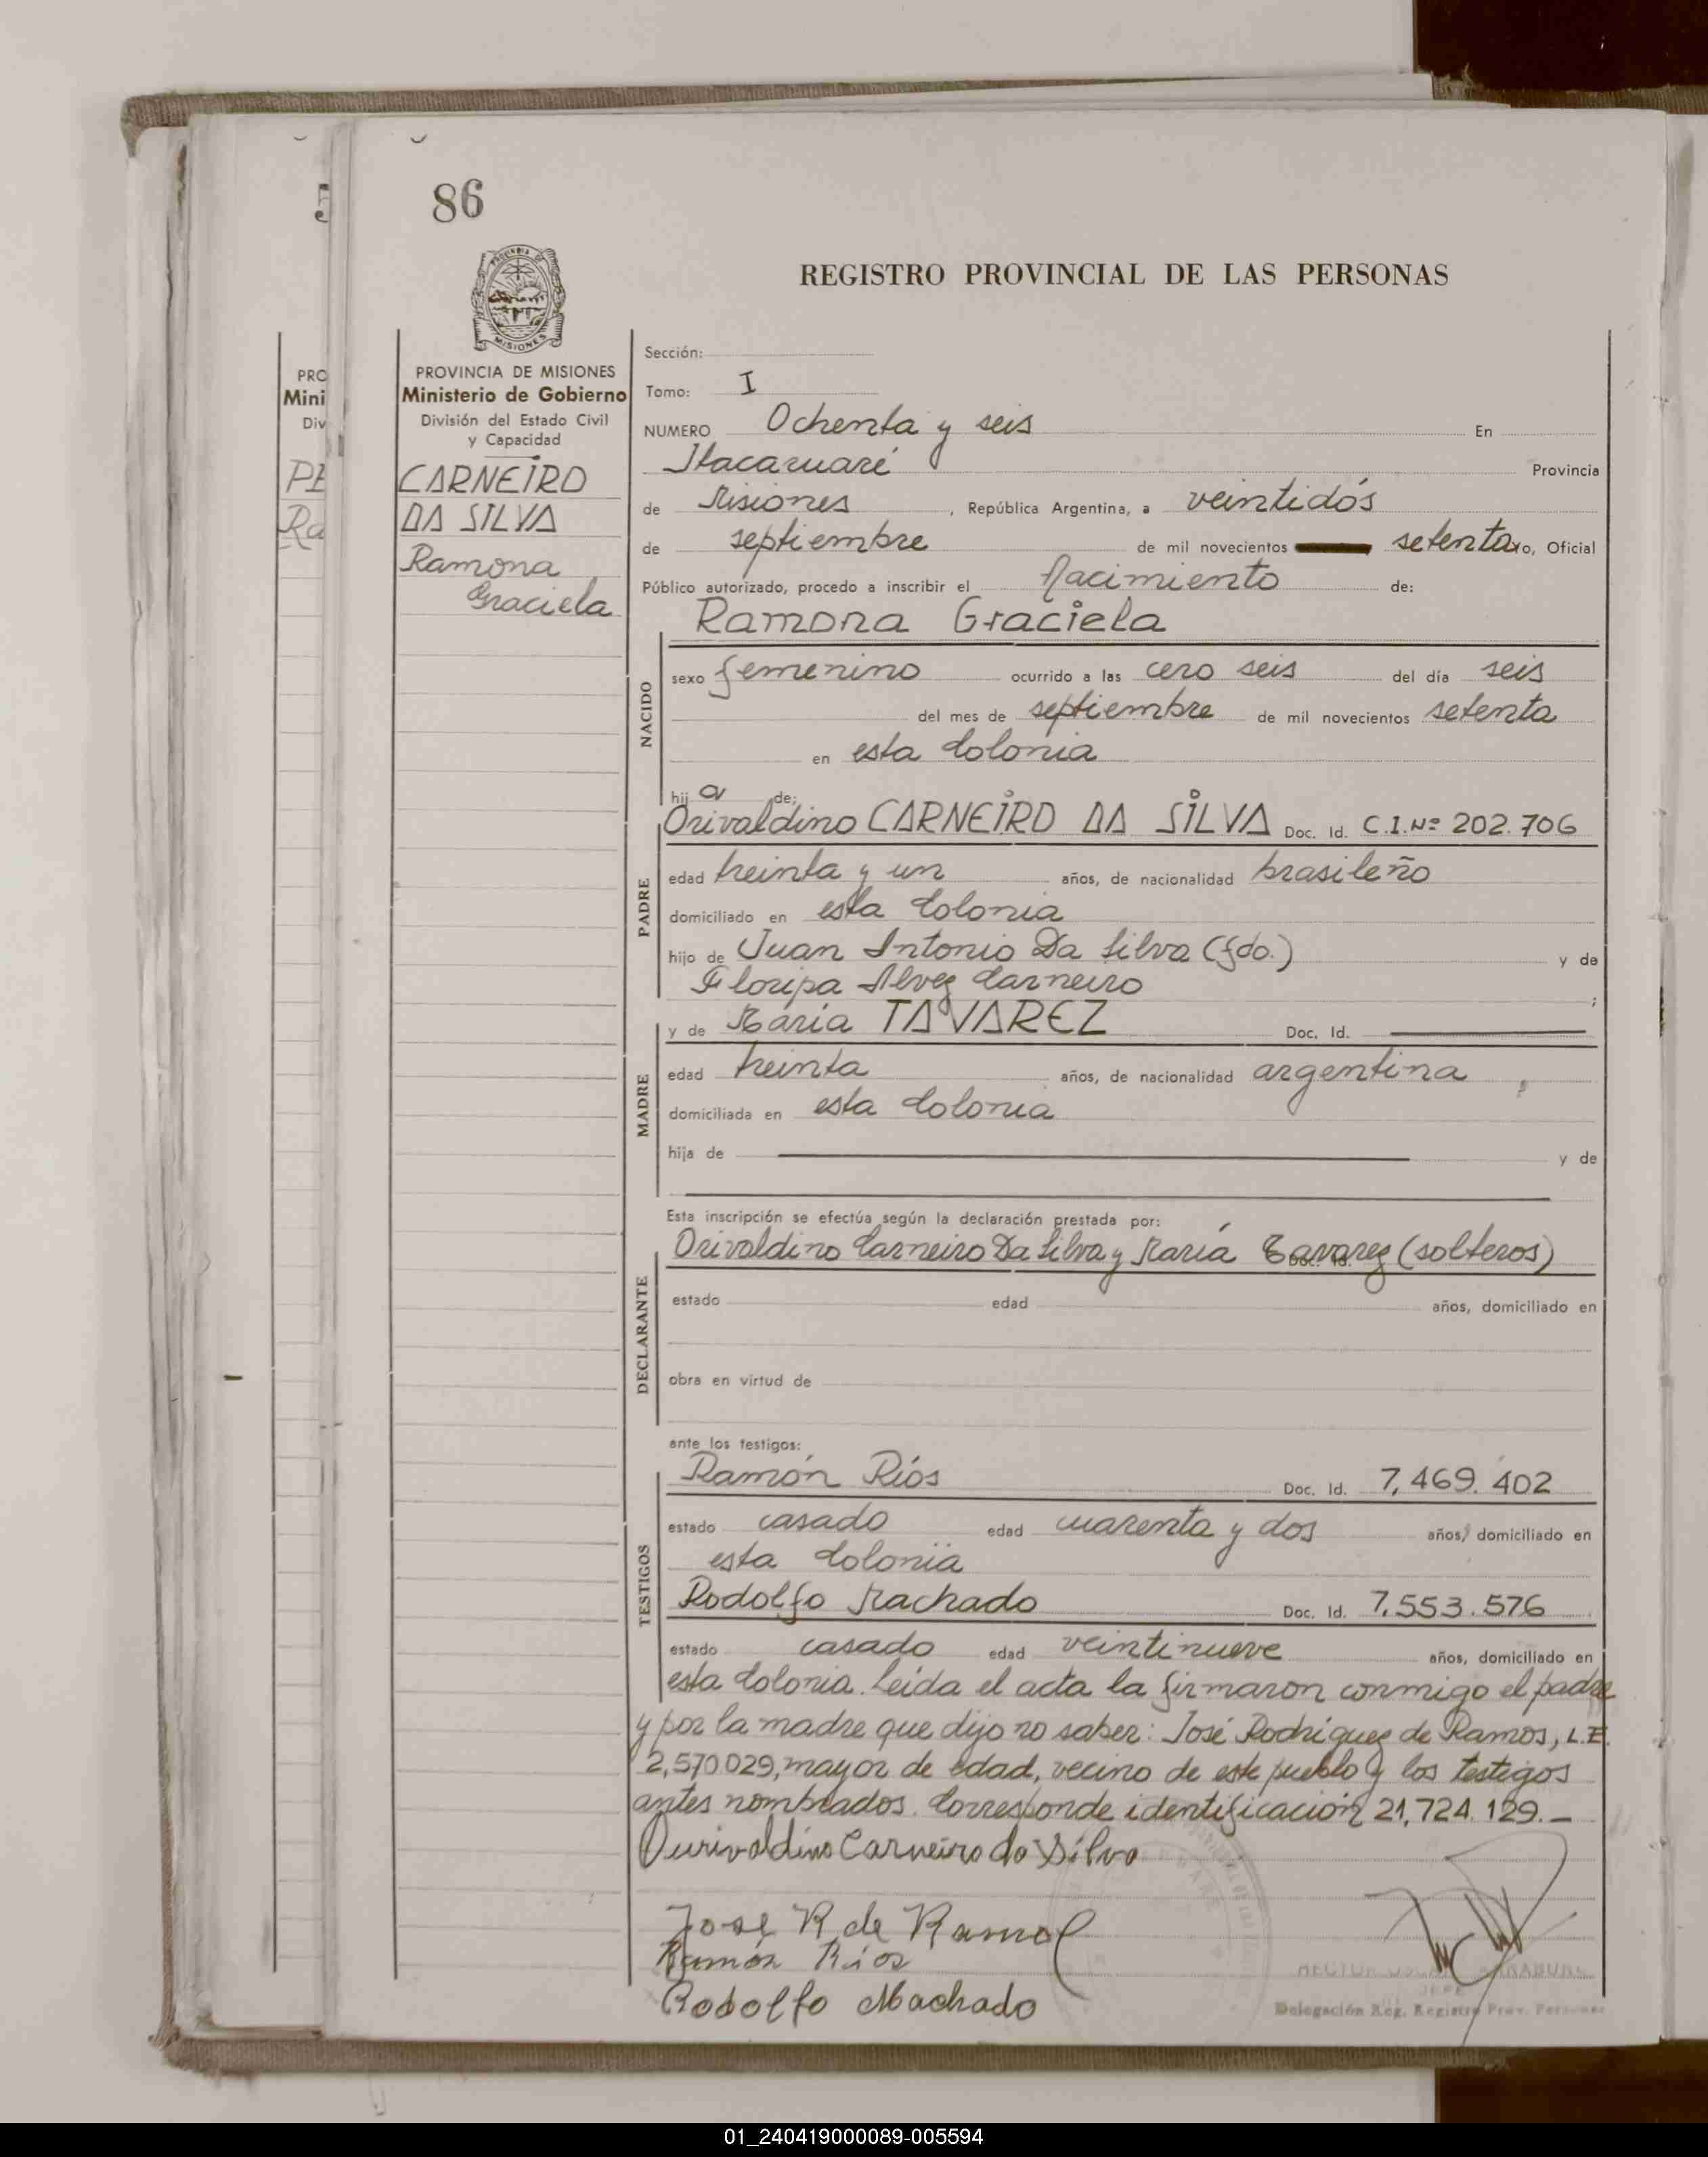 86
REGISTRO PROVINCIAL DE LAS PERSONAS
PROVINCIA DE MISIONES
Ministerio de Gobierno
División del Estado Civil
y Capacidad
CARNEIRO
DA SILVA
Ramona
Graciela
Sección:
Tomo: I
NUMERO Ochenta y seis En
Itacaruaré Provincia
de Misiones, República Argentina, a veintidós
de septiembre de mil novecientos setenta yo, Oficial
Público autorizado, procedo a inscribir el Nacimiento de:
Ramona Graciela
NACIDO
sexo femenino ocurrido a las cero seis del día seis
del mes de septiembre de mil novecientos setenta
en esta Colonia
hij a de:
Orivaldino CARNEIRO DA SILVA Doc. Id. C.I.Nº 202.706
PADRE
edad treinta y un años, de nacionalidad brasileño
domiciliado en esta Colonia
hijo de Juan Antonio Da Silva (fdo.) y de
Floripa Alvez Carneiro ;
y de María TAVAREZ Doc. Id.
MADRE
edad treinta años, de nacionalidad argentina ,
domiciliada en esta Colonia
hija de y de
Esta inscripción se efectúa según la declaración prestada por:
Orivaldino Carneiro Da Silva y María Tavarez (solteros)
Doc. Id.
DECLARANTE
estado edad años, domiciliado en
obra en virtud de
ante los testigos:
Ramón Ríos Doc. Id. 7,469.402
TESTIGOS
estado casado edad cuarenta y dos años, domiciliado en
esta Colonia
Rodolfo Machado Doc. Id. 7.553.576
estado casado edad veintinueve años, domiciliado en
esta Colonia. Leída el acta la firmaron conmigo el padre
y por la madre que dijo no saber: José Rodríguez de Ramos, L.E.
2,570.029, mayor de edad, vecino de este pueblo y los testigos
antes nombrados. Corresponde identificación 21,724.129.—
Ourivaldino Carneiro da Silva
Jose R de Ramos
Ramón Ríos
Rodolfo Machado
JEFE
Delegación Reg. Registro Prov. Personas
PRO
Mini
Div
Ra
01_240419000089-005594